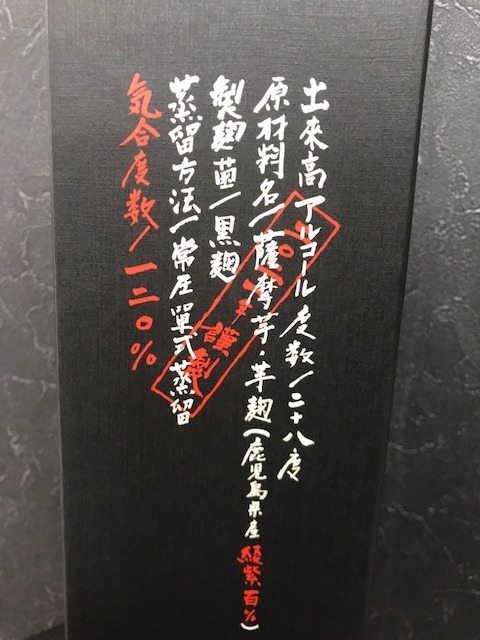 出来高アルコール度数/二十八度
原材料名/薩摩芋・芋麹(鹿児島県産 綾紫百%)
製麹菌/黒麹
蒸留方法/常圧單式蒸留
気合度数/一二〇%
謹製